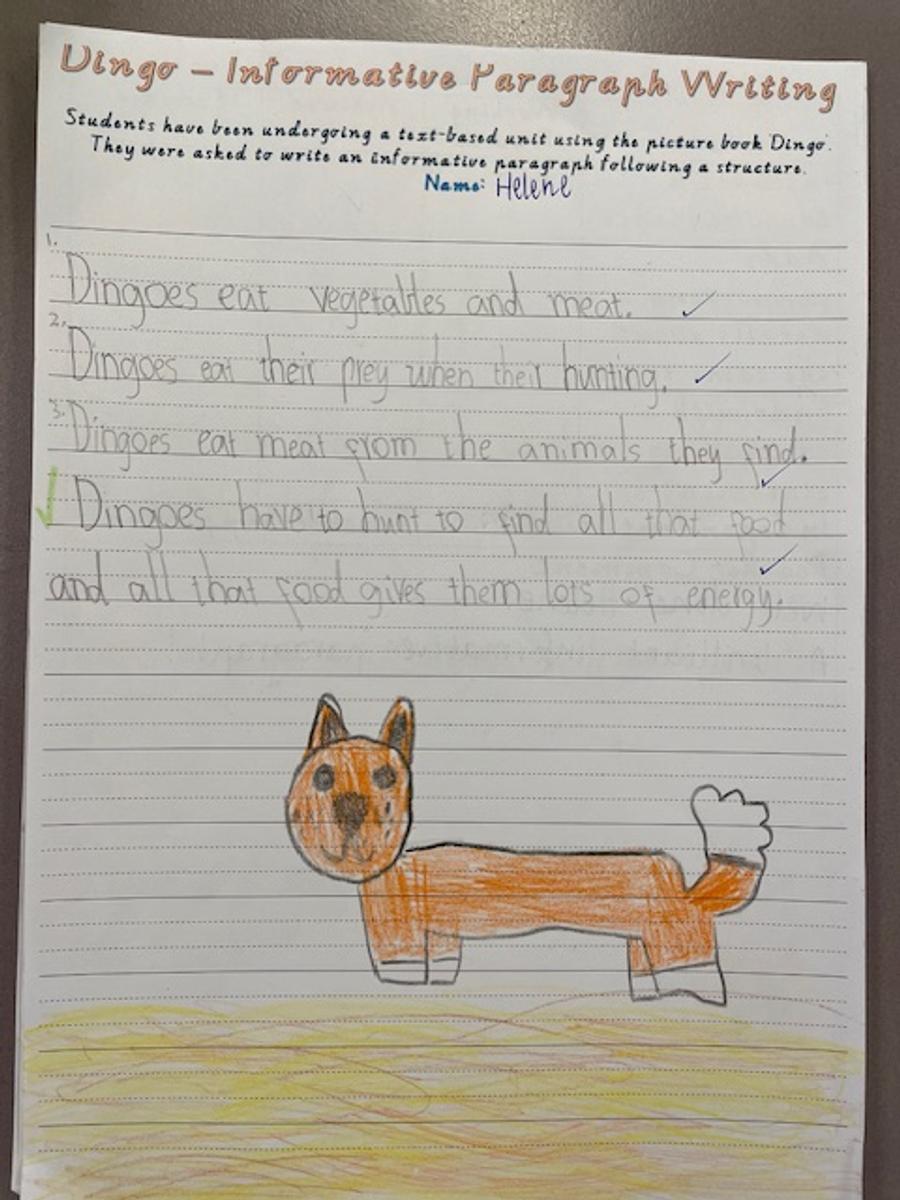 Dingo – Informative Paragraph Writing
Students have been undergoing a text-based unit using the picture book 'Dingo'.
They were asked to write an informative paragraph following a structure.
Name: Helene
1.
Dingoes eat vegetables and meat.
2.
Dingoes eat their prey when their hunting.
3.
Dingoes eat meat from the animals they find.
Dingoes have to hunt to find all that food
and all that food gives them lots of energy.